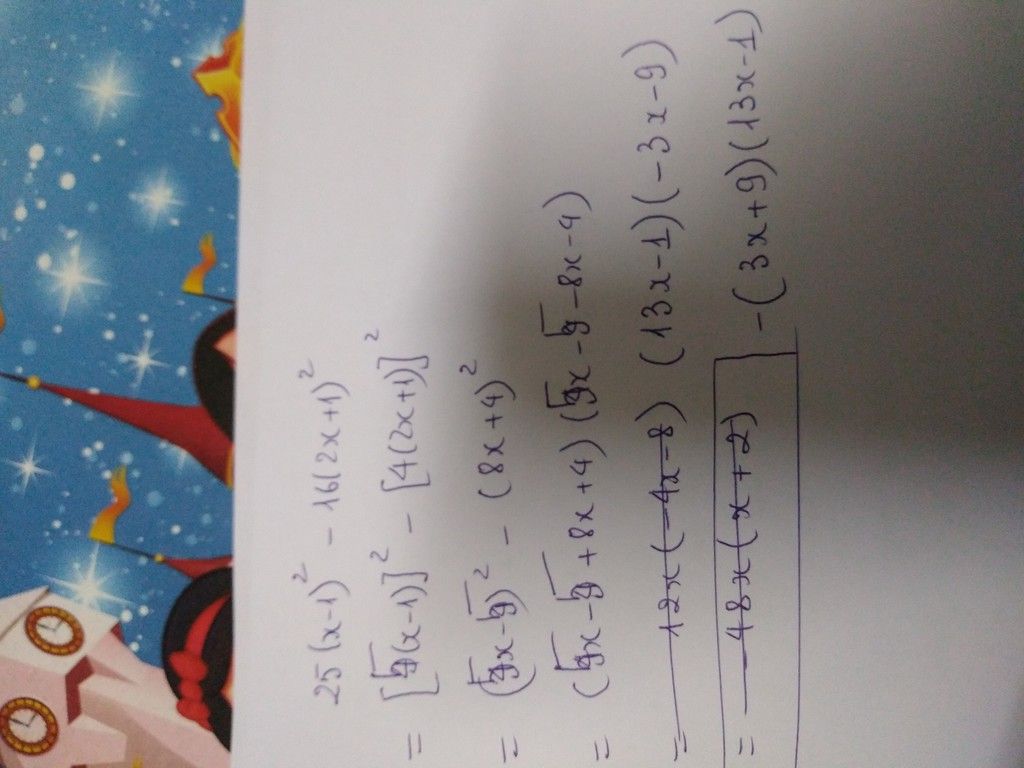 25(x-1)² - 16(2x+1)²
= [5(x-1)]² - [4(2x+1)]²
= (5x-5)² - (8x+4)²
= (5x-5+8x+4)(5x-5-8x-4)
= 12x(-4x-8) (13x-1)(-3x-9)
= -48x(x+2) -(3x+9)(13x-1)